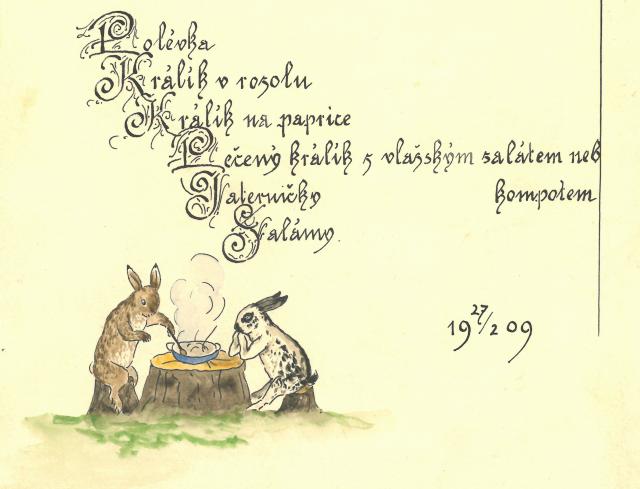 Polévka
Králík v rosolu
Králík na paprice
Pečený králík s vlašským salátem neb
Jaterničky kompotem
Salámy.
19 27/2 09